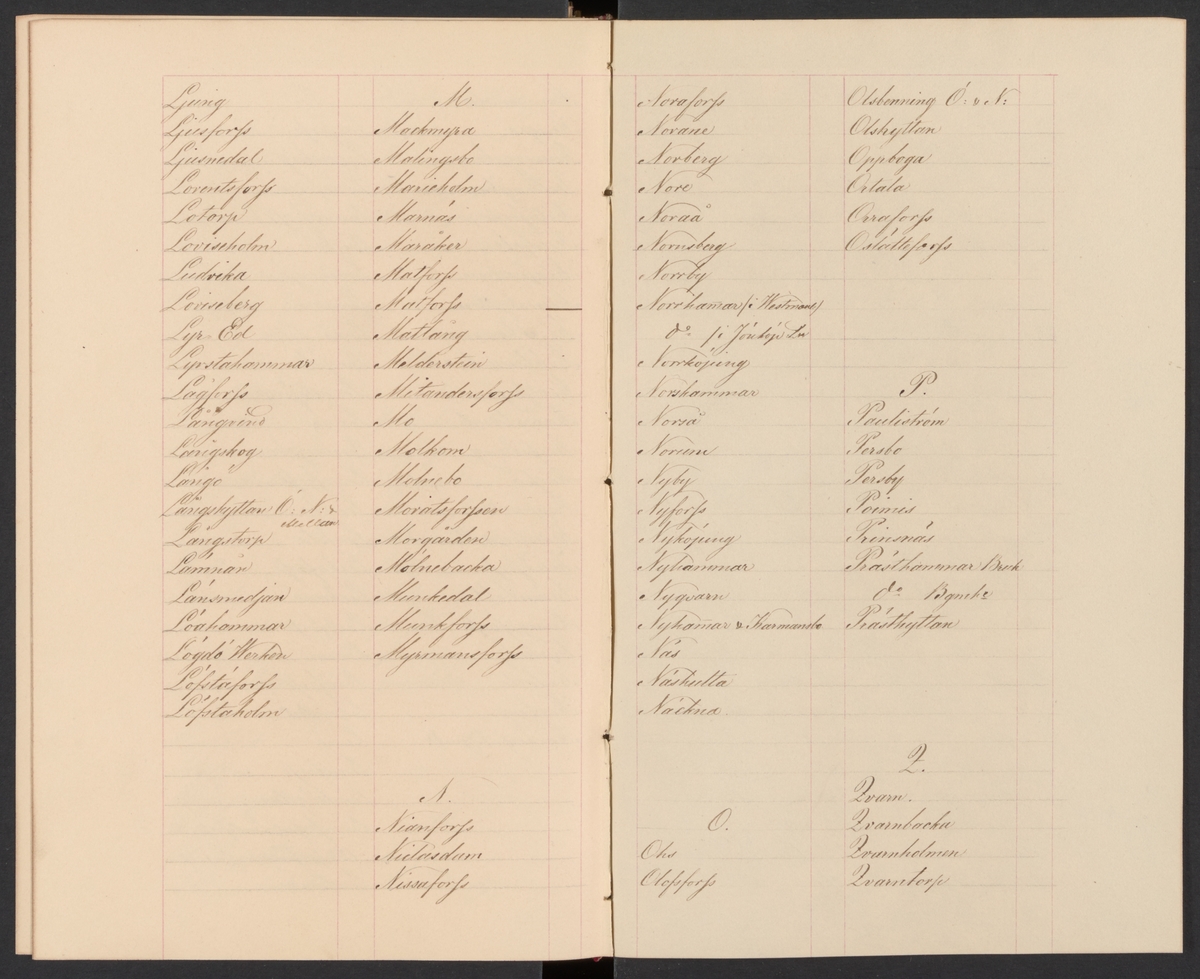 Ljung
Ljusforss
Ljusnedal
Lorentsforss
Lotorp
Loviseholm
Ludvika
Loviseberg
Lyr-Ed
Lyrstahammar
Lågforss
Långvind
Långskog
Långö
Långshyttan Ö: N: &
Mellan
Långstorp
Lämnän
Länsmedjan
Löahammar
Lögdö Werken
Löfstaforss
Löfstaholm
M.
Mackmyra
Malingsbo
Marieholm
Marnäs
Maråker
Matforss
Matforss
Matläng
Melderstein
Mitandersforss
Mo
Molkom
Molnebo
Moratsforssen
Morgården
Mölnebacka
Munkedal
Munkforss
Myrmansforss
N.
Nianforss
Niclasdam
Nissaforss
Noraforss
Norane
Norberg
Nore
Noraå
Nornsberg
Norrby
Norrhamar (i Westman)
do (i Jönköp Ln
Norrköping
Norshammar
Norså
Norum
Nyby
Nyforss
Nyköping
Nyhammar
Nyqvarn
Nyhamar & Karmansbo
Näs
Näshulta
Näckna
O.
Ohs
Olofsforss
Olsbenning Ö: & N:
Olshyttan
Oppboga
Ortala
Orraforss
Oslättforss
P.
Pauliström
Persbo
Persby
Poimis
Prinsnäs
Prästhammar Bruk
do Bgmhr
Prästhyttan
Q.
Qvarn.
Qvarnbacka
Qvarnholmen
Qvarntorp